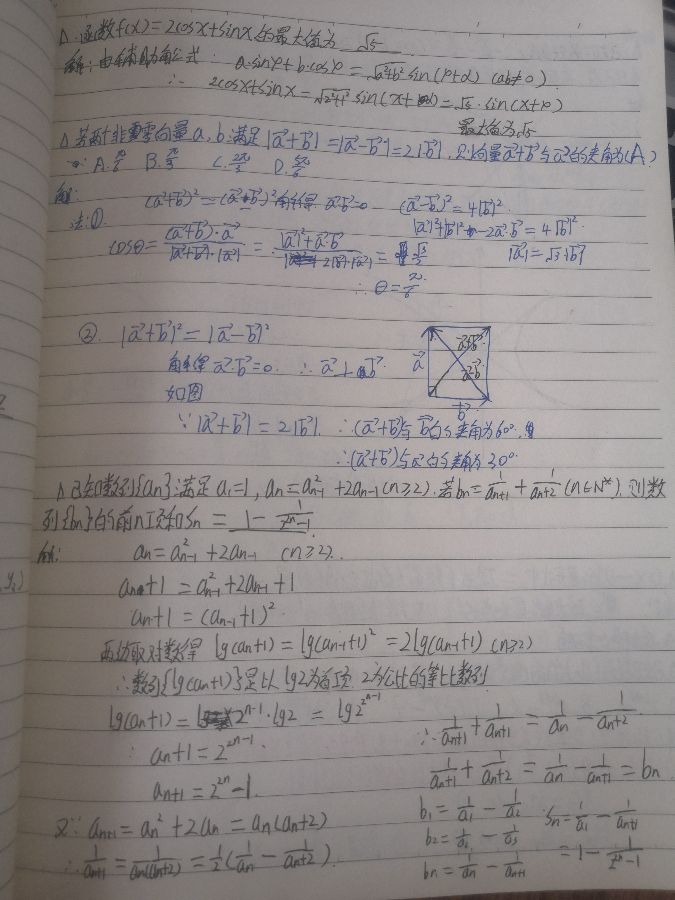 △.函数f(x)=2cosx+sinx的最大值为 √5
解:由辅助角公式: a·sinφ+b·cosφ=√(a²+b²) sin(φ+α) (ab≠0)
∴ 2cosx+sinx=√(2²+1²) sin(x+φ)=√5·sin(x+φ)
最大值为√5
△若两个非零向量a,b满足|a⃗+b⃗|=|a⃗-b⃗|=2|b⃗|,则向量a⃗+b⃗与a⃗的夹角为(A)
A.π/6 B.π/3 C.2π/3 D.5π/6
解:
法:① (a⃗+b⃗)²=(a⃗-b⃗)²解得 a⃗·b⃗=0 (a⃗-b⃗)²=4|b⃗|²
|a⃗|²+|b⃗|²-2a⃗·b⃗=4|b⃗|²
cosθ=(a⃗+b⃗)·a⃗/|a⃗+b⃗|·|a⃗|=|a⃗|²+a⃗·b⃗/2|b⃗|·|a⃗|=√3/2 |a⃗|=√3|b⃗|
∴θ=π/6
② |a⃗+b⃗|²=|a⃗-b⃗|²
解得a⃗·b⃗=0 ∴a⃗⊥b⃗
如图
a⃗ a⃗+b⃗ a⃗-b⃗ b⃗
∵|a⃗+b⃗|=2|b⃗| ∴(a⃗+b⃗)与b⃗的夹角为60°
∴(a⃗+b⃗)与a⃗的夹角为30°
△已知数列{an}满足a₁=1,an=a²n-1+2an-1(n≥2).若bn=1/(an+1)+1/(an+2)(n∈N*).则数
列{bn}的前n项和Sn=1-1/(2^2^n-1)
解: an=a²n-1+2an-1 (n≥2).
an+1=a²n-1+2an-1+1
an+1=(an-1+1)²
两边取对数得 lg(an+1)=lg(an-1+1)²=2lg(an-1+1) (n≥2)
∴数列{lg(an+1)}是以lg2为首项 2为公比的等比数列
lg(an+1)=2^(n-1)·lg2=lg2^2^(n-1)
∴an+1=2^2^(n-1)
an+1=2^2^n-1.
又∵an+1=an²+2an=an(an+2)
∴1/an+1=1/an(an+2)=1/2(1/an-1/(an+2)).
∴1/an+1+1/an+1=1/an-1/(an+2)
1/(an+1)+1/(an+2)=1/an-1/an+1=bn
b₁=1/a₁-1/a₂ Sn=1/a₁-1/an+1
b₂=1/a₂-1/a₃
bn=1/an-1/an+1 =1-1/(2^2^n-1)